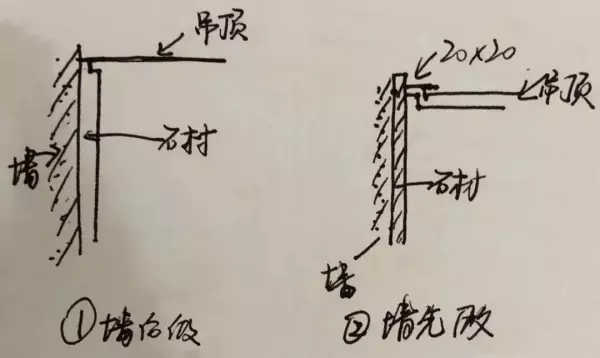 吊顶
墙
石材
①墙后做
20×20
吊顶
石材
墙
②墙先做